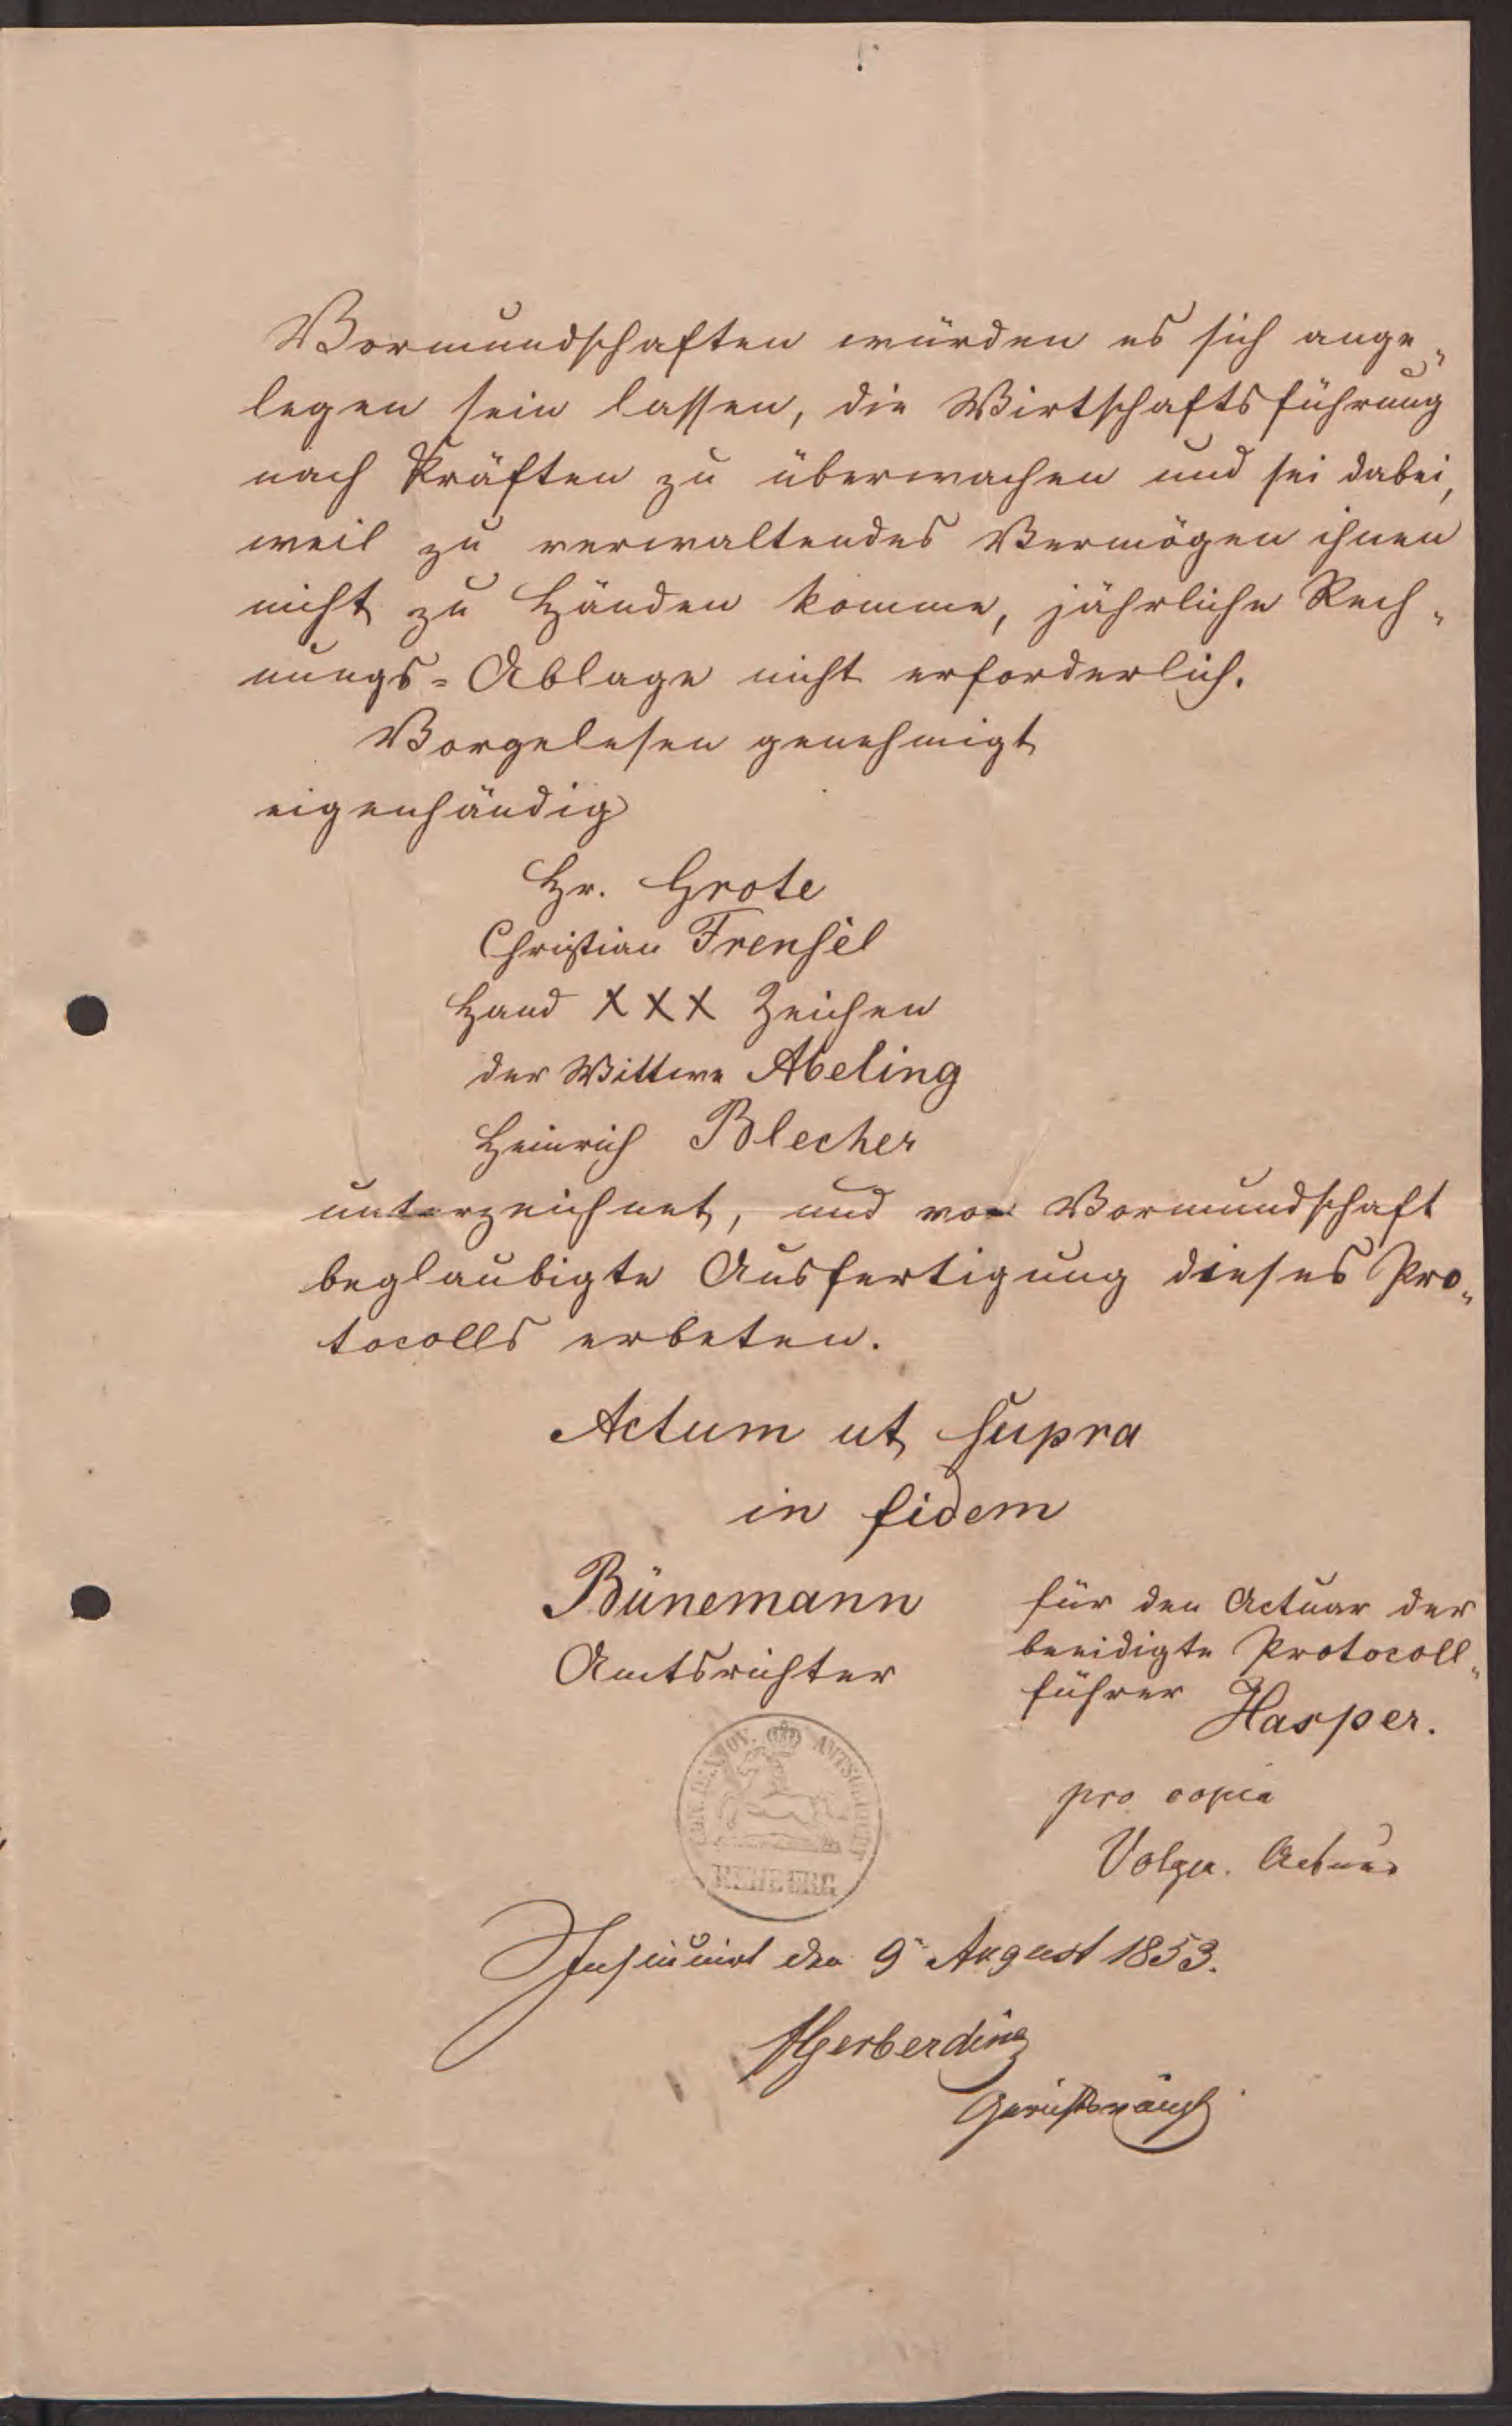 Vormundschaften würden es sich ange„
legen sein lassen, die Wirtschaftsführung
nach Kräften zu überwachen und sei dabei,
weil zu verwaltendes Vermögen ihnen
nicht zu Händen komme, jährliche Rech„
nungs=Ablage nicht erforderlich.
Vorgelesen genehmigt
eigenhändig
Hr. Grote
Christian Frensel
Hand XXX Zeichen
der Wittwe Abeling
Heinrich Blecher
unterzeichnet, und von Vormundschaft
beglaubigte Ausfertigung dieses Pro„
tocolls erbeten.
Actum ut supra
in fidem
Bünemann
Amtsrichter
für den Actuar der
beeidigte Protocoll„
führer Hasper.
KÖN. HANNOV. AMTSGERICHT
REHBURG
pro copia
Volger. Actuar
Insinuirt den 9n August 1853.
Gerberding
Gerichtsvoigt